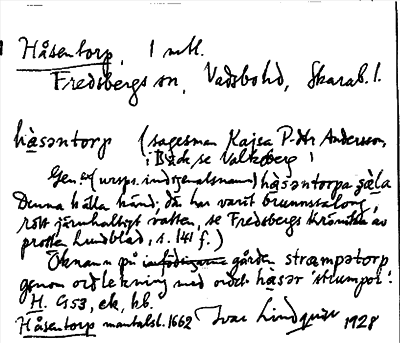 Håsentorp, 1 mtl.
Fredsbergs sn, Vadsbo hd, Skarab. l.
hàsəntorp (sagesman Kajsa P-dtr Andersson,
i Bäck, se Valkeberg)
Gen. (urspr. indtjenatsnamn) hàsəntorpa
Denna källa känd; där har varit brunnssalong,
rött järnhaltigt vatten, se Fredsbergs krönika av
prosten Lundblad, s. 141 f.)
Öknamn på gården stræmpətorp
genom ordlekning med ordet hàsər 'strumpor'.
H. G53, ek, hb.
Håsentorp mantalsl. 1662 Ivar Lindquist 1928